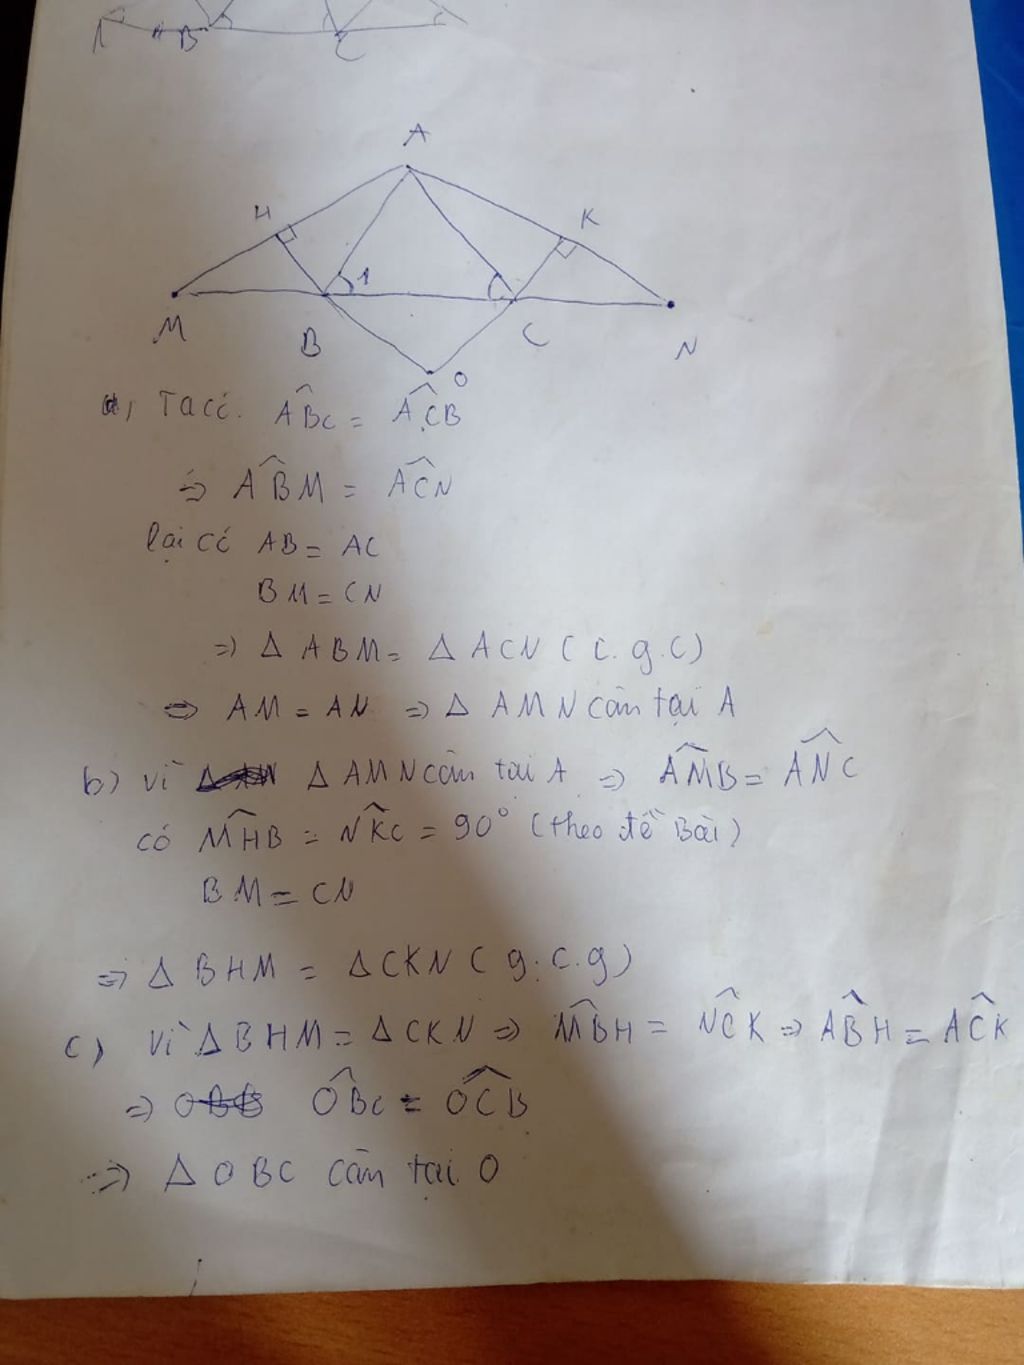 B
C
A
H
K
1
M
B
C
N
O
a, Ta có. ABC = ACB
=> ABM = ACN
lại có AB = AC
BM = CN
=> Δ ABM = Δ ACN ( c. g. c)
=> AM = AN => Δ AMN cân tại A
b) Vì Δ AMN cân tại A => AMB = ANC
có MHB = NKC = 90° (theo đề Bài)
BM = CN
=> Δ BHM = Δ CKN ( g. c. g)
c) Vì Δ BHM = Δ CKN => MBH = NCK => ABH = ACK
=> OBC = OCB
=> Δ OBC cân tại O